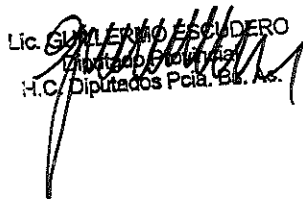 Lic. GUILLERMO ESCUDERO
Diputado Provincial
H.C. Diputados Pcia. Bs. As.